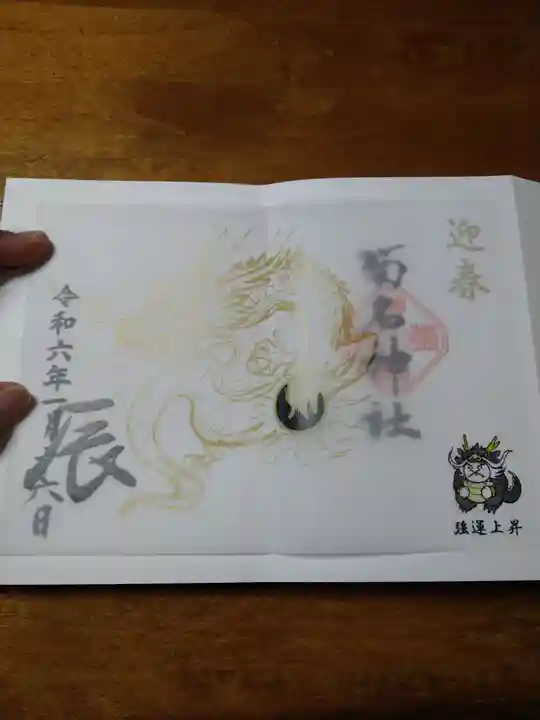 迎春
菊名神社
辰
令和六年一月十六日
強運上昇